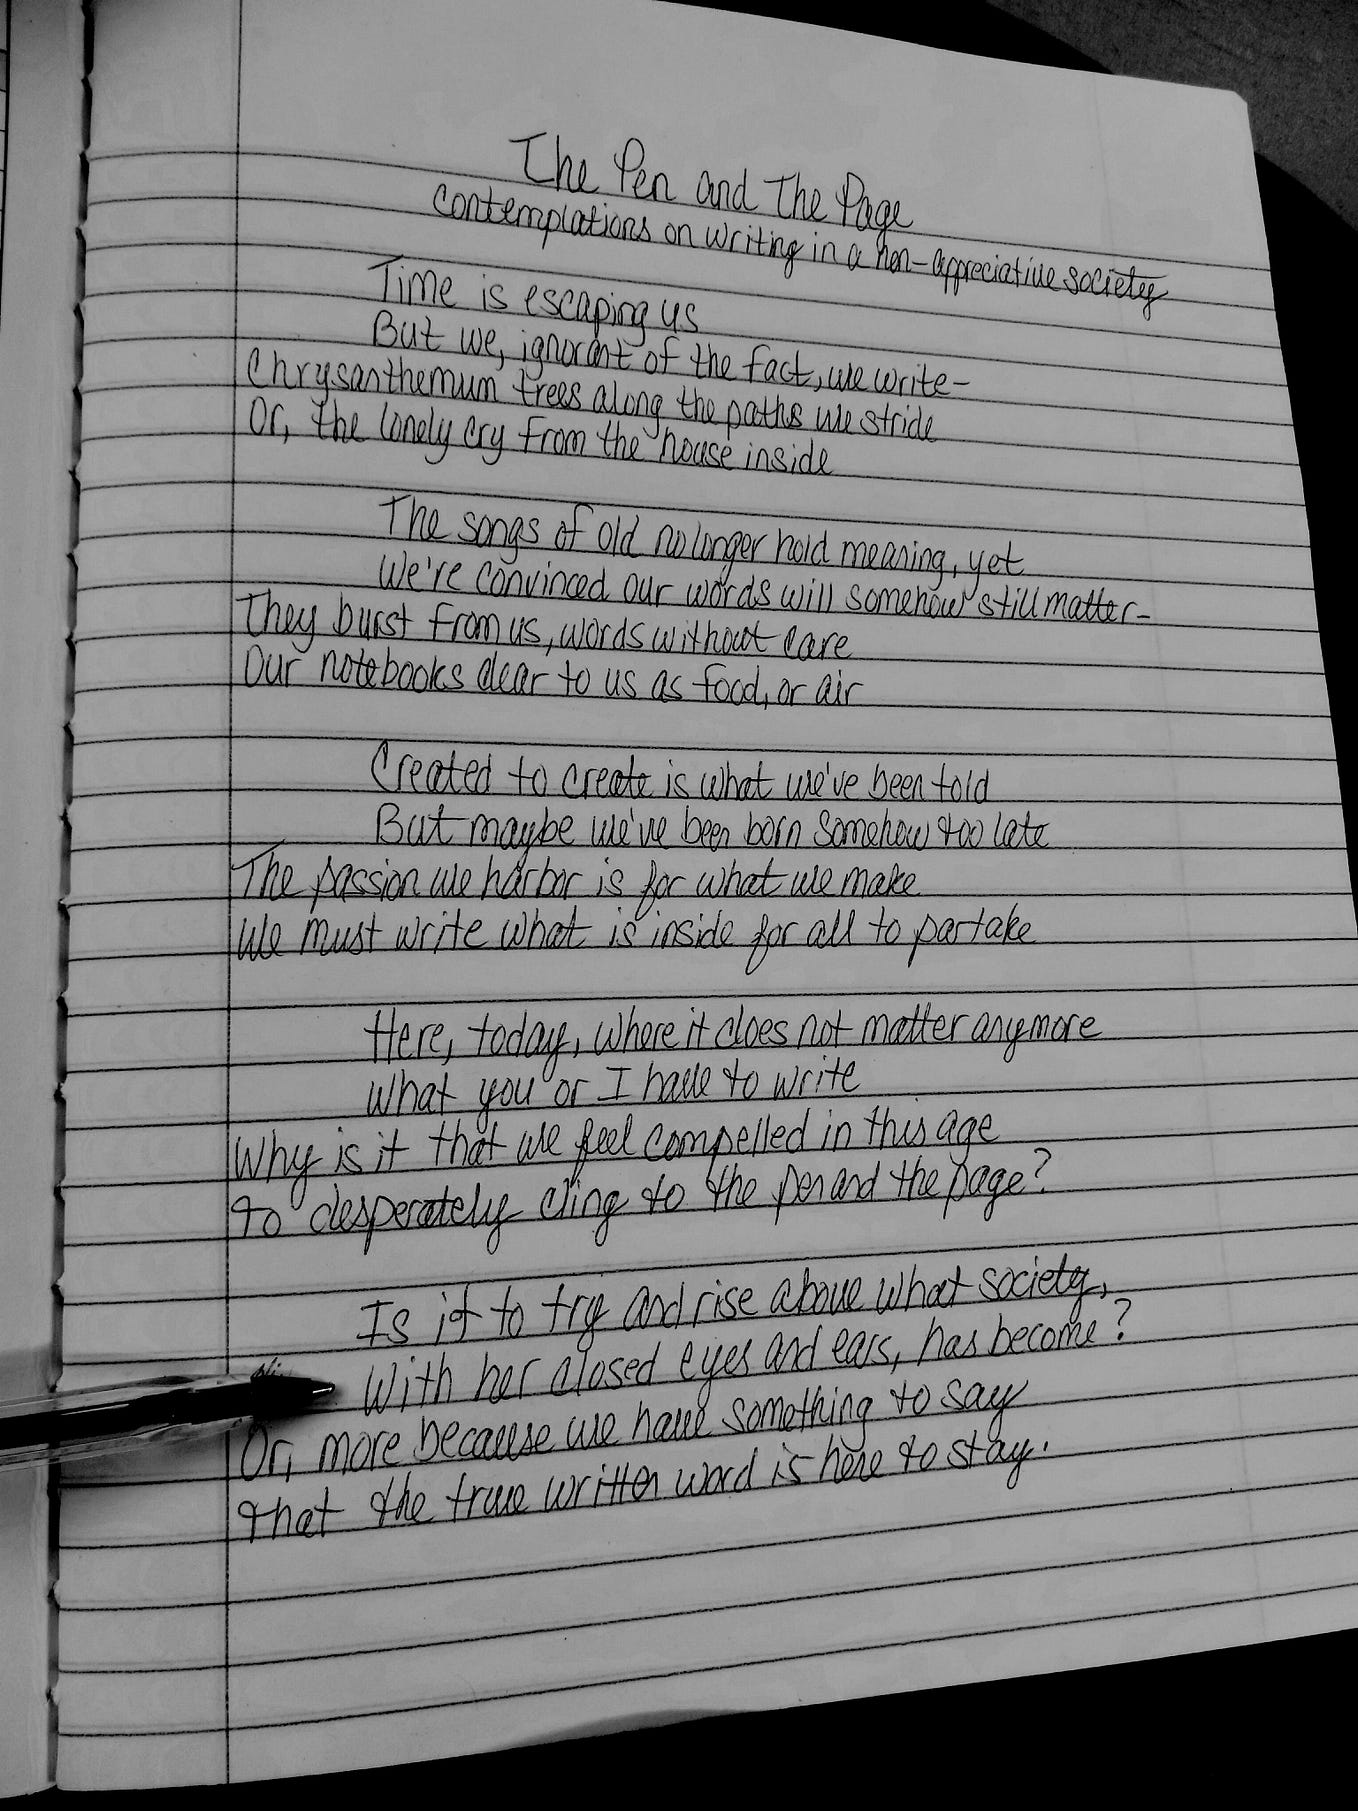 The Pen and The Page
Contemplations on writing in a non-appreciative society
Time is escaping us
But we, ignorant of the fact, we write-
Chrysanthemum trees along the paths we stride
Or, the lonely cry from the house inside
The songs of old no longer hold meaning, yet
We're convinced our words will somehow still matter-
They burst from us, words without care
Our notebooks dear to us as food, or air
Created to create is what we've been told
But maybe we've been born somehow too late
The passion we harbor is for what we make
We must write what is inside for all to partake
Here, today, where it does not matter anymore
What you or I have to write
Why is it that we feel compelled in this age
to desperately cling to the pen and the page?
Is it to try and rise above what society,
With her closed eyes and ears, has become?
Or, more because we have something to say
that the true written word is here to stay.